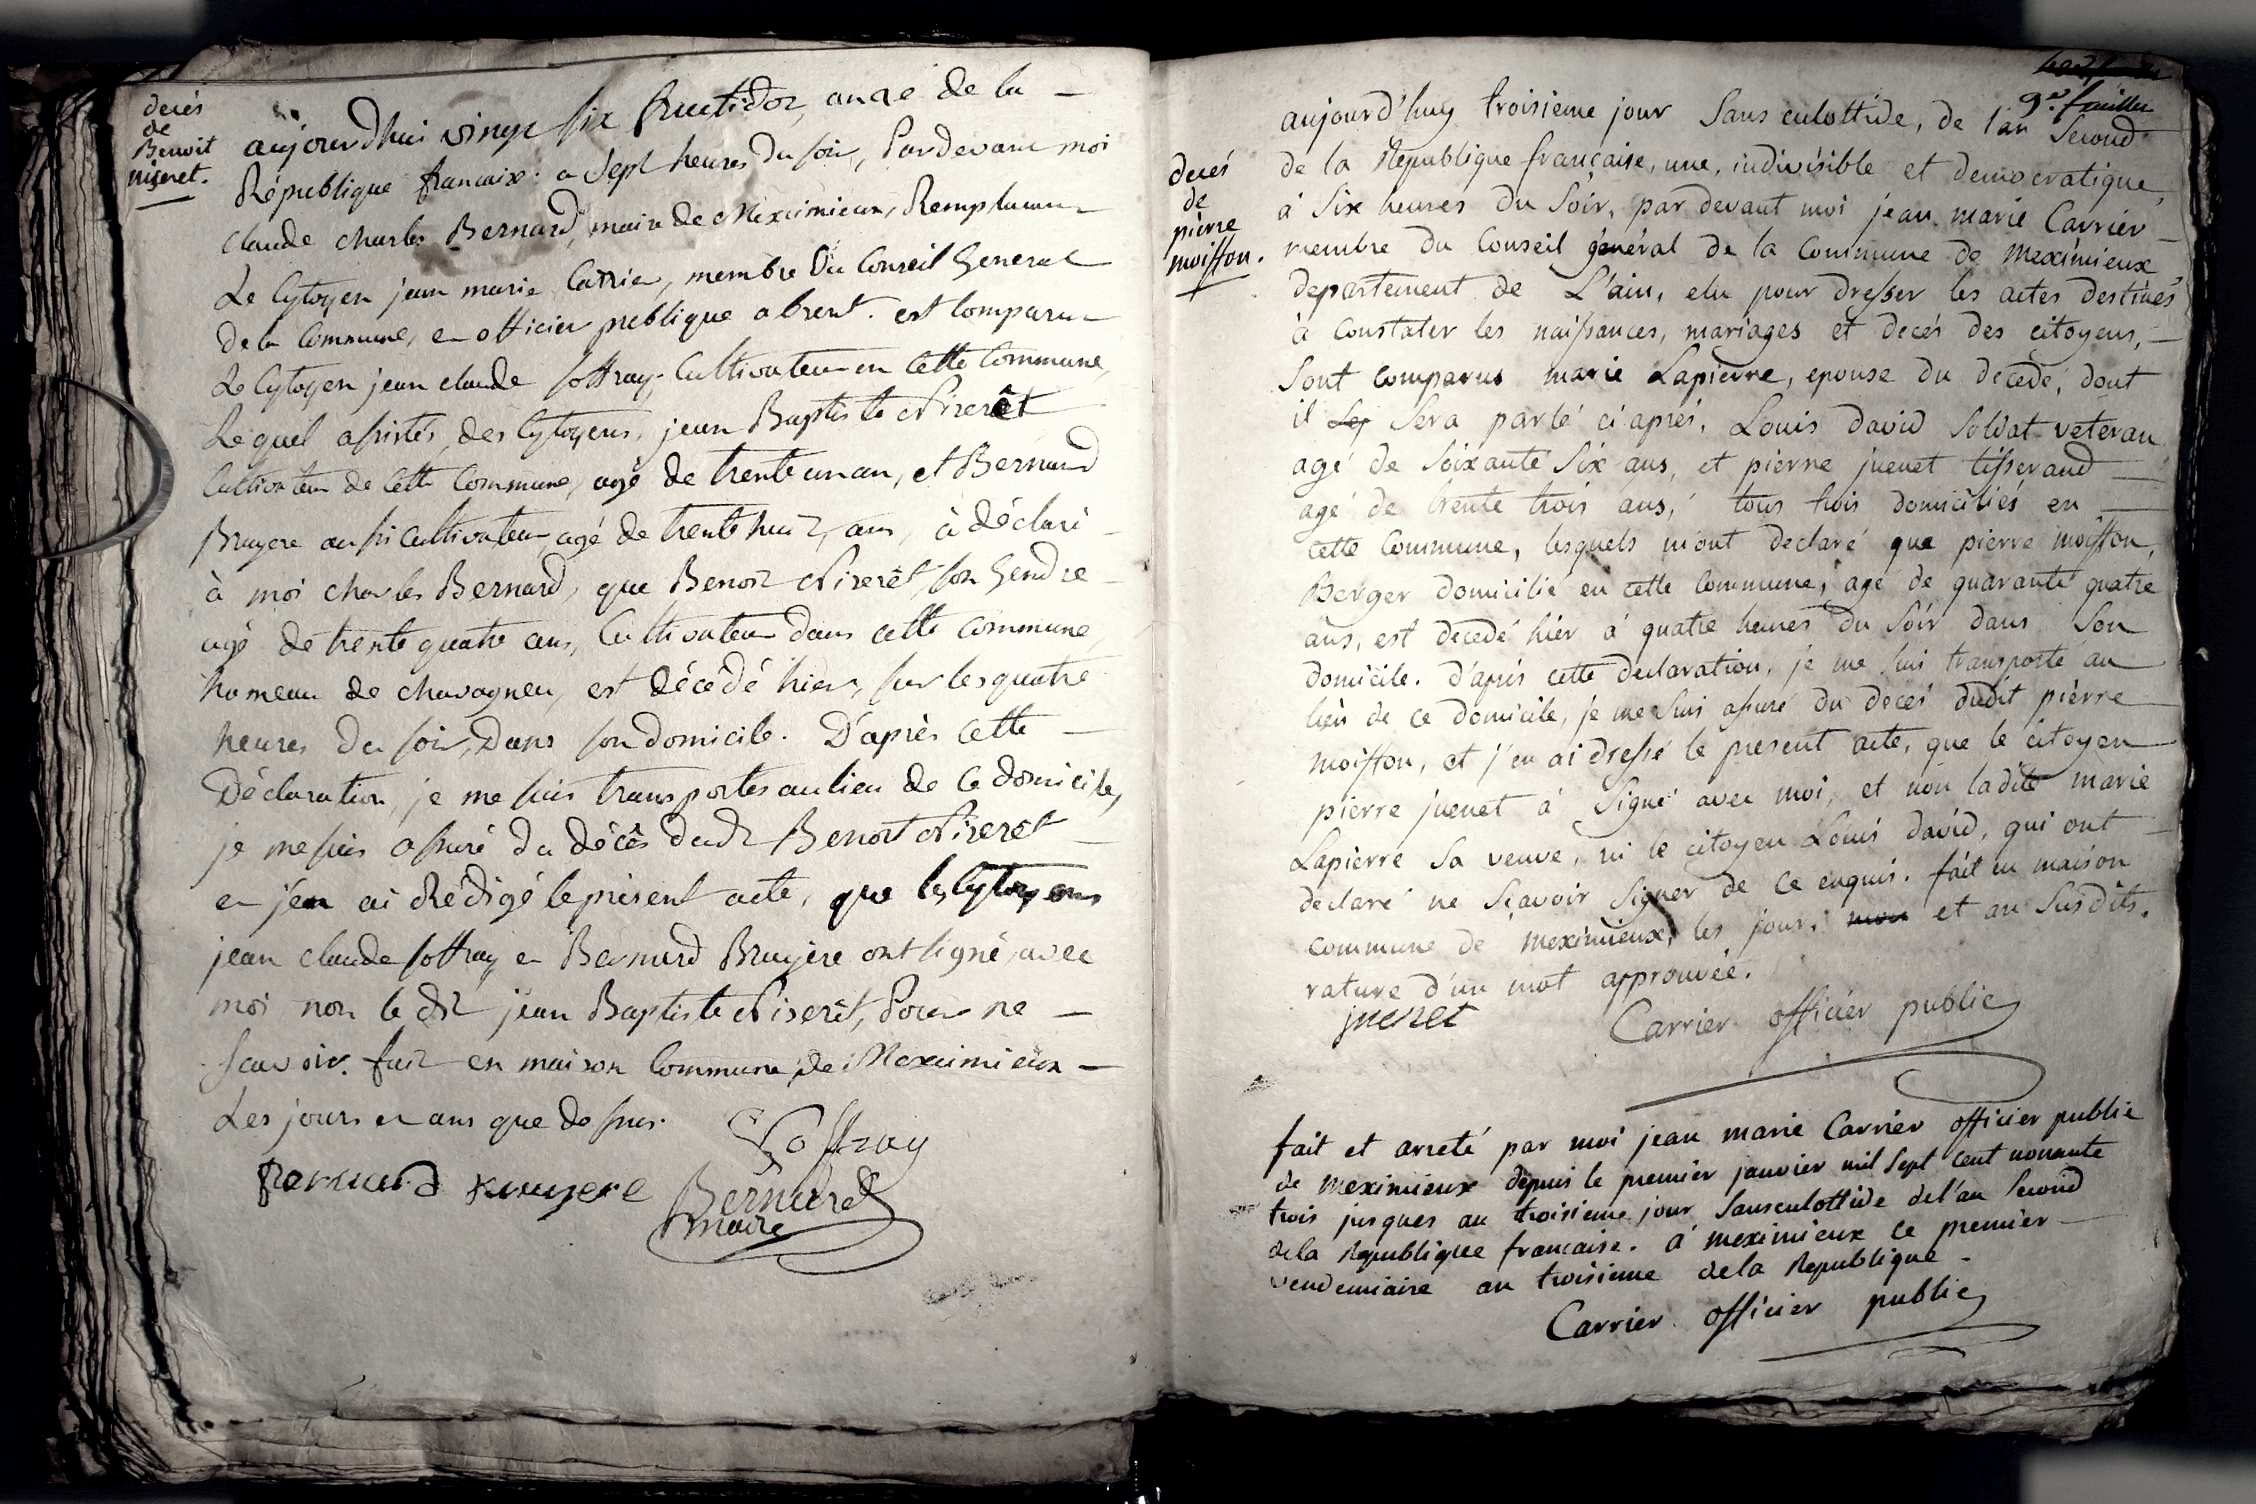 decés
de
Benoit
niseret.
aujourdhui vingt six fructidor, an 2e de la —
République francaise. a Sept heures du soir, Pardevant moi
Claude charles Bernard, maire de Meximieux, Remplacant
Le Cytoyen jean marie Carrie, membre du Conseil General
de la Commune, et officier publique absent. est Comparu
Le Cytoyen jean claude soffray, Cultivateur en cette Commune,
Lequel assistés des Cytoyens, jean Baptiste Niserêt
Cultivateur de cette Commune, agé de trente un an, et Bernard
Bruyere aussi Cultivateur, agé de trente huit, ans, à déclaré
à moi charles Bernard, que Benoit Niserêt son Gendre
agé de trente quatre ans, Cultivateur dans cette commune,
hameau de chavagneu, est décédé hier, sur les quatre
heures du soir, Dans son domicile. D'après Cette —
Déclaration, je me suis transportés au lieu de Ce domicile,
je me suis assuré du décês dudt Benoit Niserêt —
et j'en ai Rédigé le présent acte, que les Cytoyens
jean claude soffray et Bernard Bruyère ont signé, avec
moi non le dt jean Baptiste Niserêt, Pour ne —
Scavoir. fait en maison Commune, de Meximieux —
Les jours et ans que dessus.
Soffray
Bernard bruyere
Bernard
maire
9e. feuillet
aujourd'huy troisieme jour Sans culottide, de l'an Second
decés
de
pierre
moisson.
de la Republique française, une, indivisible et democratique,
à Six heures du Soir, par devant moi jean marie Carrier —
membre du Conseil général de la Commune de meximieux,
departement de L'ain, elu pour dresser les actes destinés
à Constater les naissances, mariages et decés des citoyens, —
Sont comparus marie Lapierre, epouse du décédé, dont
il Sera parlé ci aprés, Louis david Soldat veteran
agé de soixante Six ans, et pierre juenet tisserand —
agé de trente trois ans, tous trois domiciliés en —
cette Commune, lesquels m'ont declaré que pierre moisson,
Berger domicilié en cette Commune, agé de quarante quatre
ans, est decedé hier à quatre heures du Soir dans Son
domicile. d'aprés cette declaration, je me suis transporté au
lieu de ce domicile, je me suis assuré du decés dudit pierre
moisson, et j'en ai dressé le present acte, que le citoyen
pierre juenet à Signé avec moi, et non ladite marie
Lapierre Sa veuve, ni le citoyen Louis david, qui ont —
declaré ne Sçavoir Signer de ce enquis. fait en maison
commune de meximieux, les jour, mois et an Susdits.
rature d'un mot approuvée.
juenet Carrier officier public
fait et arreté par moi jean marie Carrier officier public
de meximieux depuis le premier janvier mil Sept cent nonante
trois jusques au troisieme jour Sansculottide de l'an Second
de la Republique francaise. à meximieux ce premier —
vendemiaire an troisieme de la Republique —
Carrier officier public